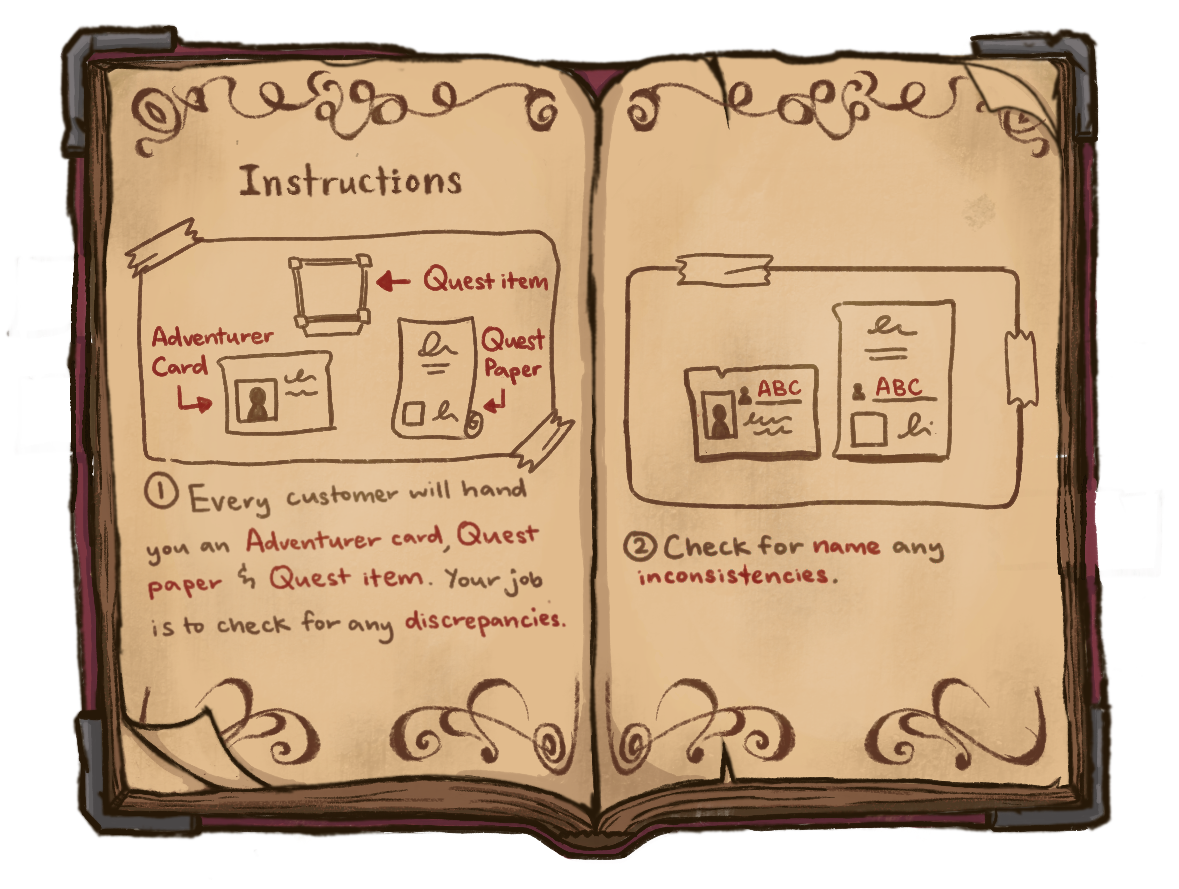 Instructions
Quest item
Adventurer
Card
Quest
Paper
① Every customer will hand
you an Adventurer card, Quest
paper & Quest item. Your job
is to check for any discrepancies.
ABC
ABC
② Check for name any
inconsistencies.